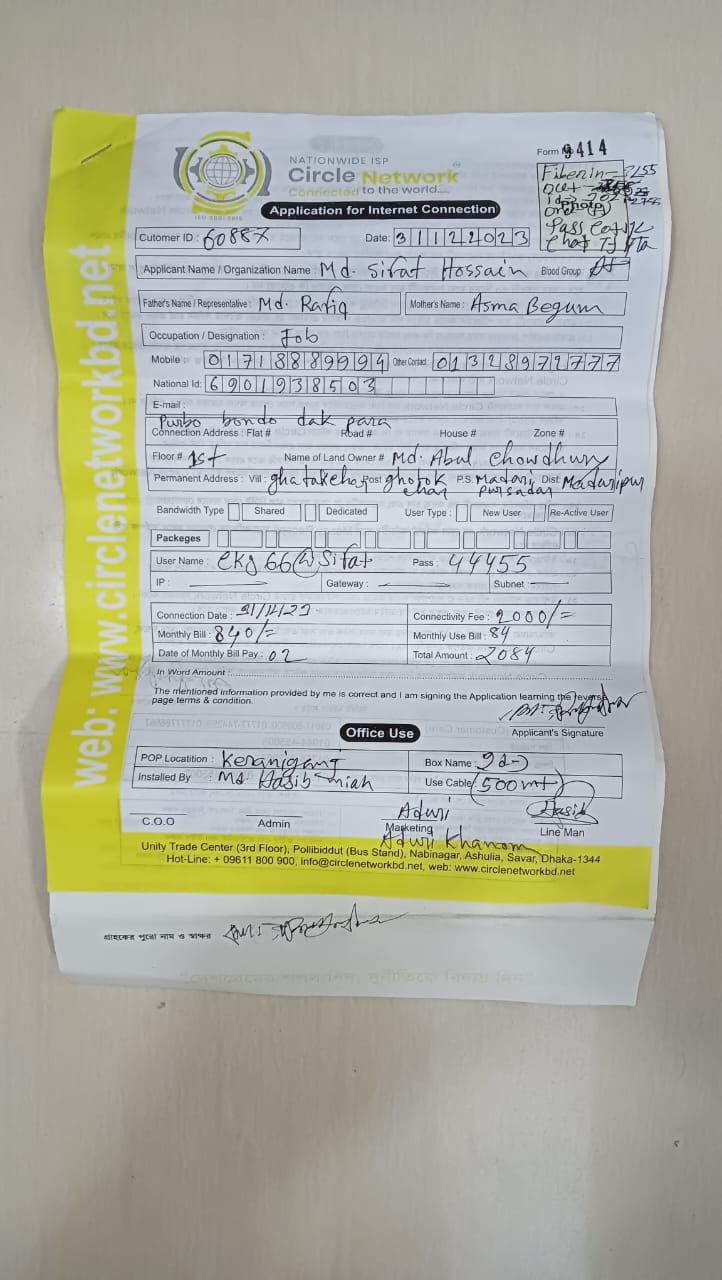 NATIONWIDE ISP
Circle Network
Connected to the world....
Application for Internet Connection
Form 9414
Fiberin-
Cutomer ID : 60887
Date: 31122023
Applicant Name / Organization Name : Md. Sifat Hossain Blood Group :
Father's Name / Representative : Md. Rafiq Mother's Name : Asma Begum
Occupation / Designation : Job
Mobile : 01718889994 Other Contact : 01328972777
National Id: 6901938503
E-mail :
Purbo bondo dak para
Connection Address : Flat # Road # House # Zone #
Floor # 1st Name of Land Owner # Md. Abul Chowdhury
Permanent Address : Vill : ghatakchar Post ghotok char P.S. Dist: Madaripur
Bandwidth Type Shared Dedicated User Type : New User Re-Active User
Packeges
User Name : ekg66@sifat Pass : 44455
IP : Gateway : Subnet
Connection Date : 31/12/23 Connectivity Fee : 2000/=
Monthly Bill : 840/= Monthly Use Bill : 84
Date of Monthly Bill Pay : 02 Total Amount : 2084
In Word Amount :
The mentioned information provided by me is correct and I am signing the Application learning the reverse
page terms & condition.
Applicant's Signature
Office Use
POP Locatition : Keranigant Box Name :
Installed By : Md. Hasib miah Use Cable 500mt
Aduri Hasib
C.O.O Admin Marketing Line Man
Aduri Khanom
Unity Trade Center (3rd Floor), Pollibiddut (Bus Stand), Nabinagar, Ashulia, Savar, Dhaka-1344
Hot-Line: + 09611 800 900, info@circlenetworkbd.net, web: www.circlenetworkbd.net
গ্রাহকের পুরো নাম ও স্বাক্ষর
web: www.circlenetworkbd.net